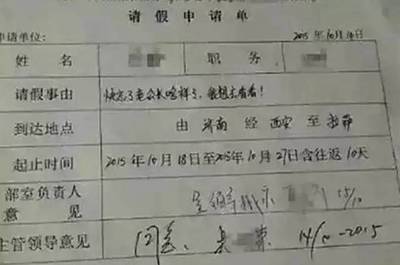 请假申请单
申请单位: 2015年10月14日
姓名 职务
请假事由 快忘了老公长啥样了,我想去看看!
到达地点 由 济南 经 西安 至 拉萨
起止时间 2015年10月18日至2015年10月27日含往返10天
部室负责人
意见 呈领导批示
主管领导意见 同意、 14/10-2015